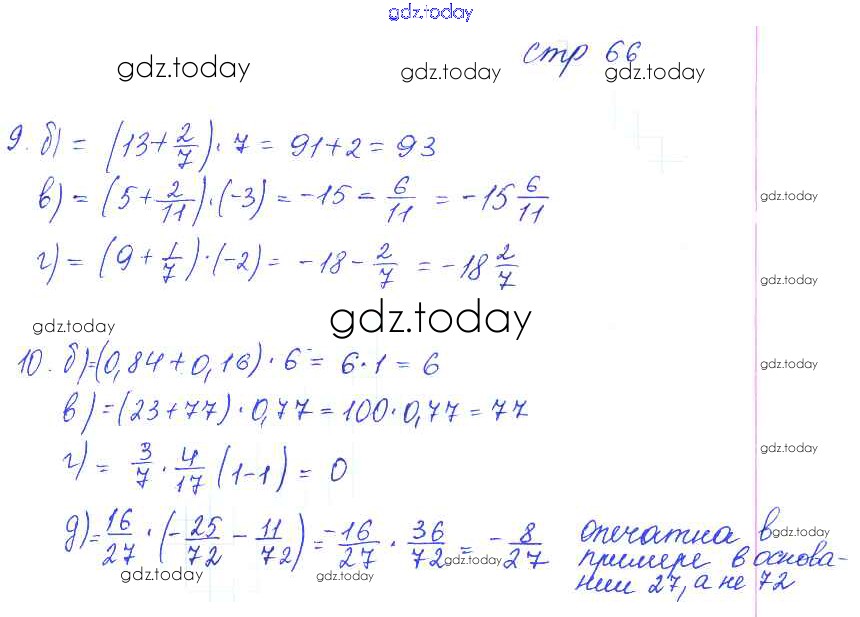 gdz.today
gdz.today gdz.today стр 66 gdz.today
9. б) = (13 + 2/7) · 7 = 91 + 2 = 93
в) = (5 + 2/11) · (-3) = -15 = 6/11 = -15 6/11
gdz.today
г) = (9 + 1/7) · (-2) = -18 - 2/7 = -18 2/7
gdz.today
gdz.today gdz.today
10. б) = (0,84 + 0,16) · 6 = 6 · 1 = 6
gdz.today
в) = (23 + 77) · 0,77 = 100 · 0,77 = 77
г) = 3/7 · 4/17 (1 - 1) = 0
gdz.today
д) = 16/27 · (-25/72 - 11/72) = -16/27 · 36/72 = -8/27
опечатка в
gdz.today
примере в основа-
нии 27, а не 72
gdz.today gdz.today gdz.today